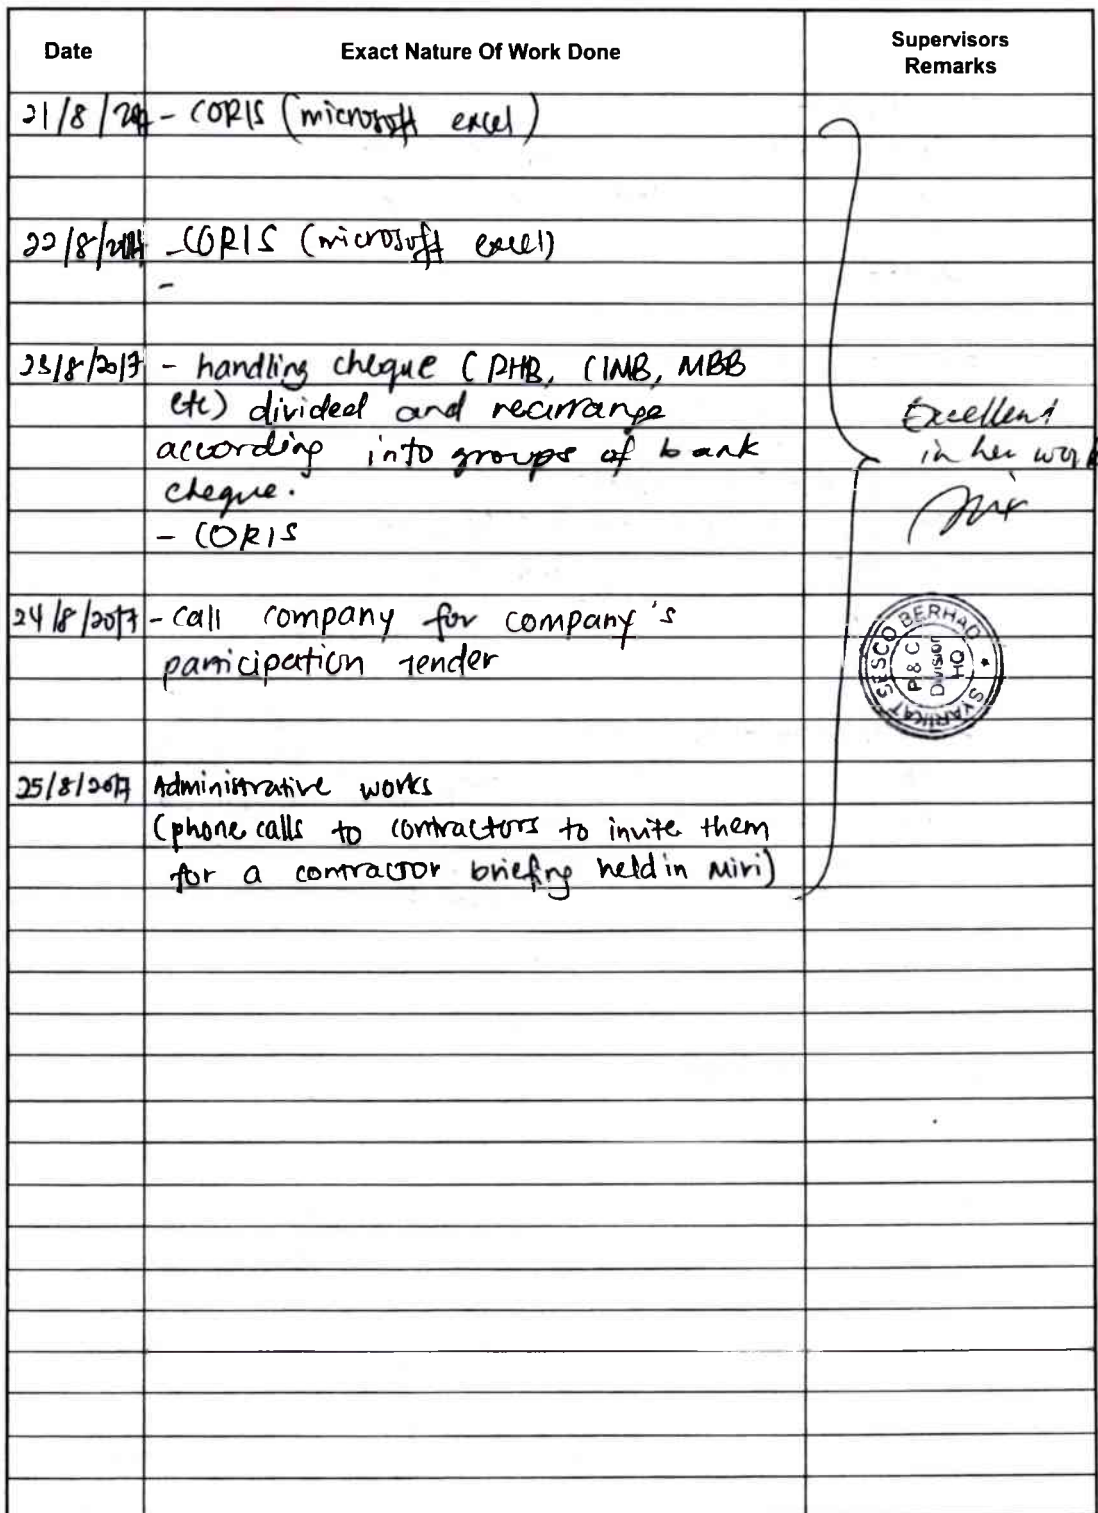 Date Exact Nature Of Work Done Supervisors Remarks
21/8/2017 - CORIS (microsoft excel)
22/8/2017 - CORIS (microsoft excel)
-
23/8/2017 - handling cheque (PHB, CIMB, MBB
etc) divided and rearrange
according into groups of bank
cheque.
- CORIS
Excellent
in her work
24/8/2017 - call company for company's
participation tender
SYARIKAT SESCO BERHAD
P & C
Division
HQ
25/8/2017 Administrative works
(phone calls to contractors to invite them
for a contractor briefing held in Miri)